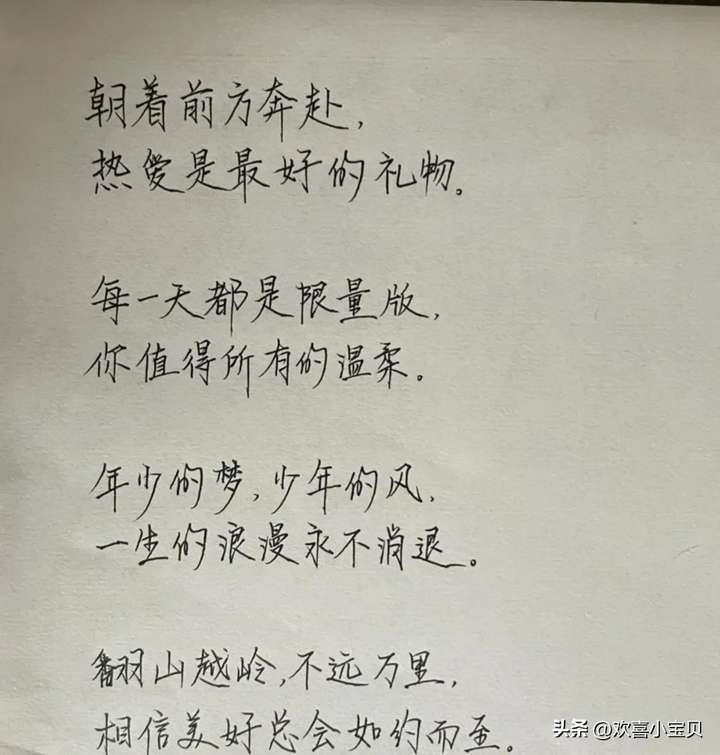 朝着前方奔赴,
热爱是最好的礼物。
每一天都是限量版,
你值得所有的温柔。
年少的梦,少年的风,
一生的浪漫永不消退。
翻山越岭,不远万里,
相信美好总会如约而至。
头条 @欢喜小宝贝